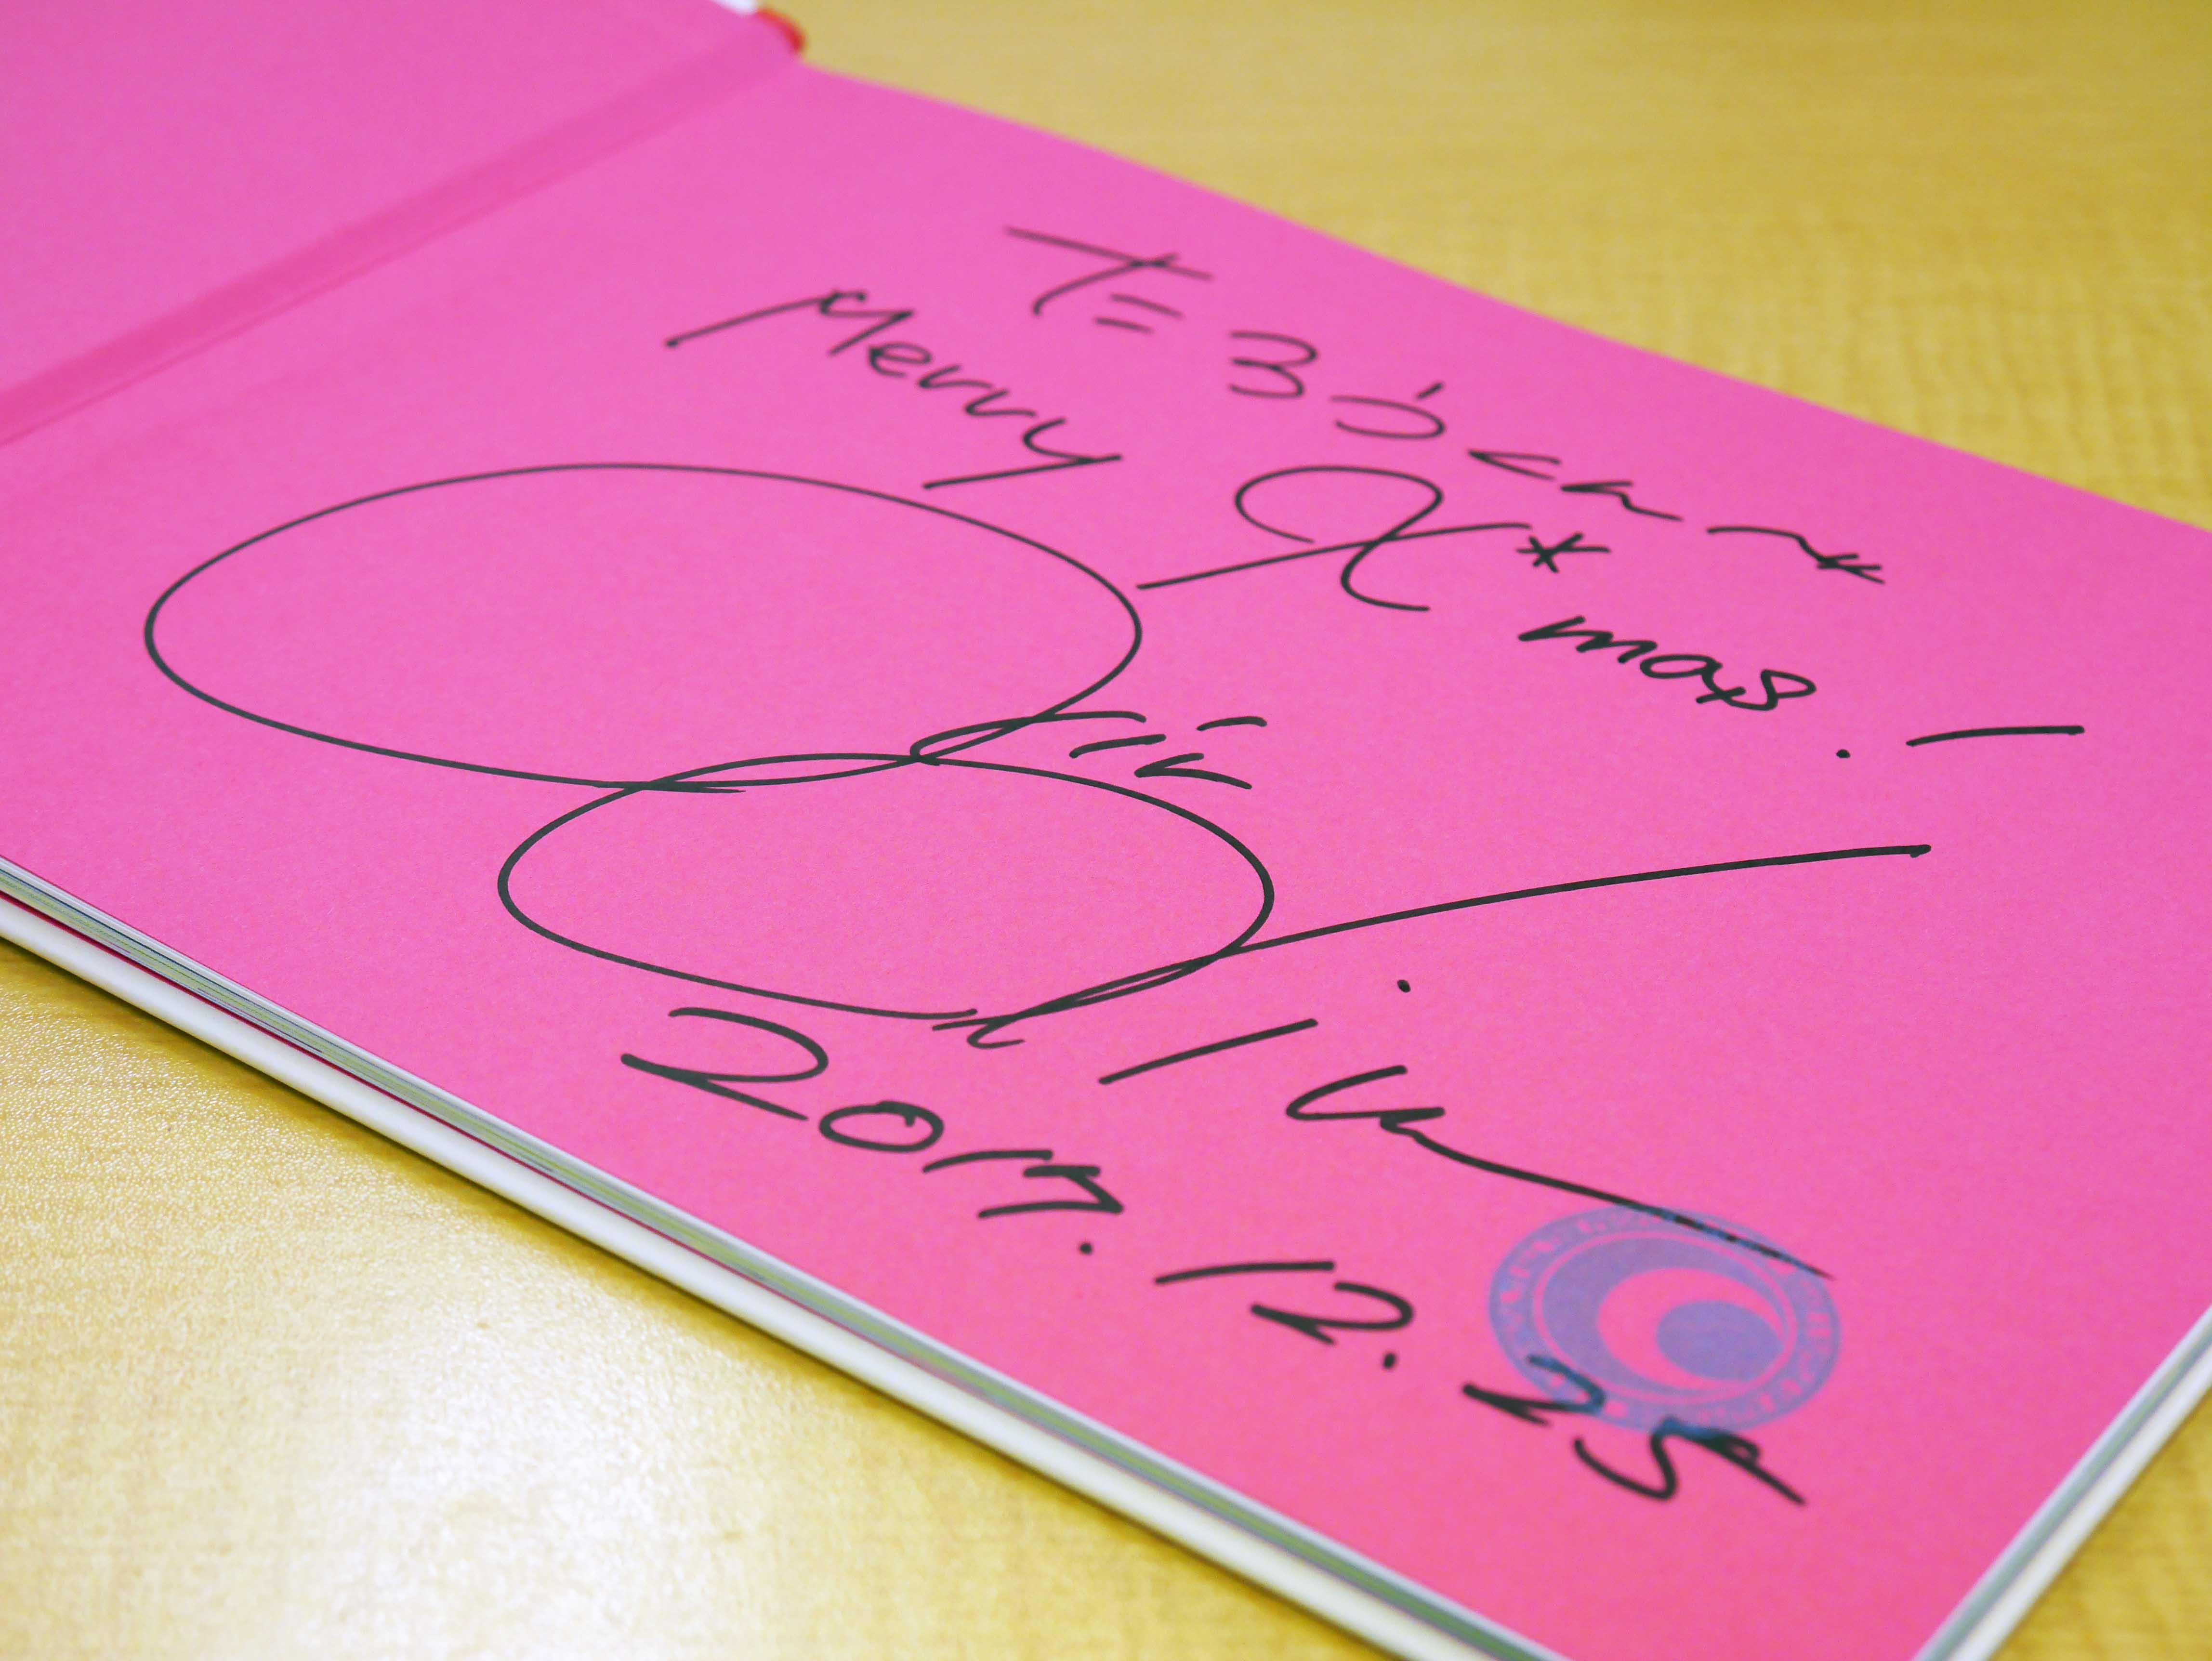 たろうくんへ
Merry X*mas!
2017.12.25